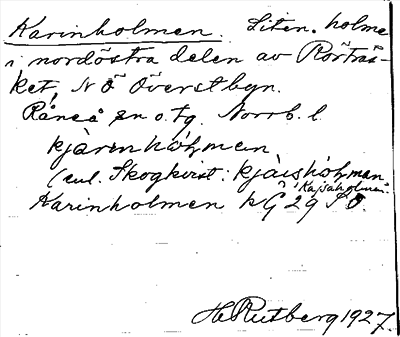 Karinholmen. Liten holme
i nordöstra delen av Rörträs-
ket, N Ö Överstbyn.
Råneå sn o. tg. Norrb. l.
kjàrınhólman
(enl. Skogkvist: kjàishólman
"Kajsaholmen"
Karinholmen k G 29 S Ö.
H. Rutberg 1927.